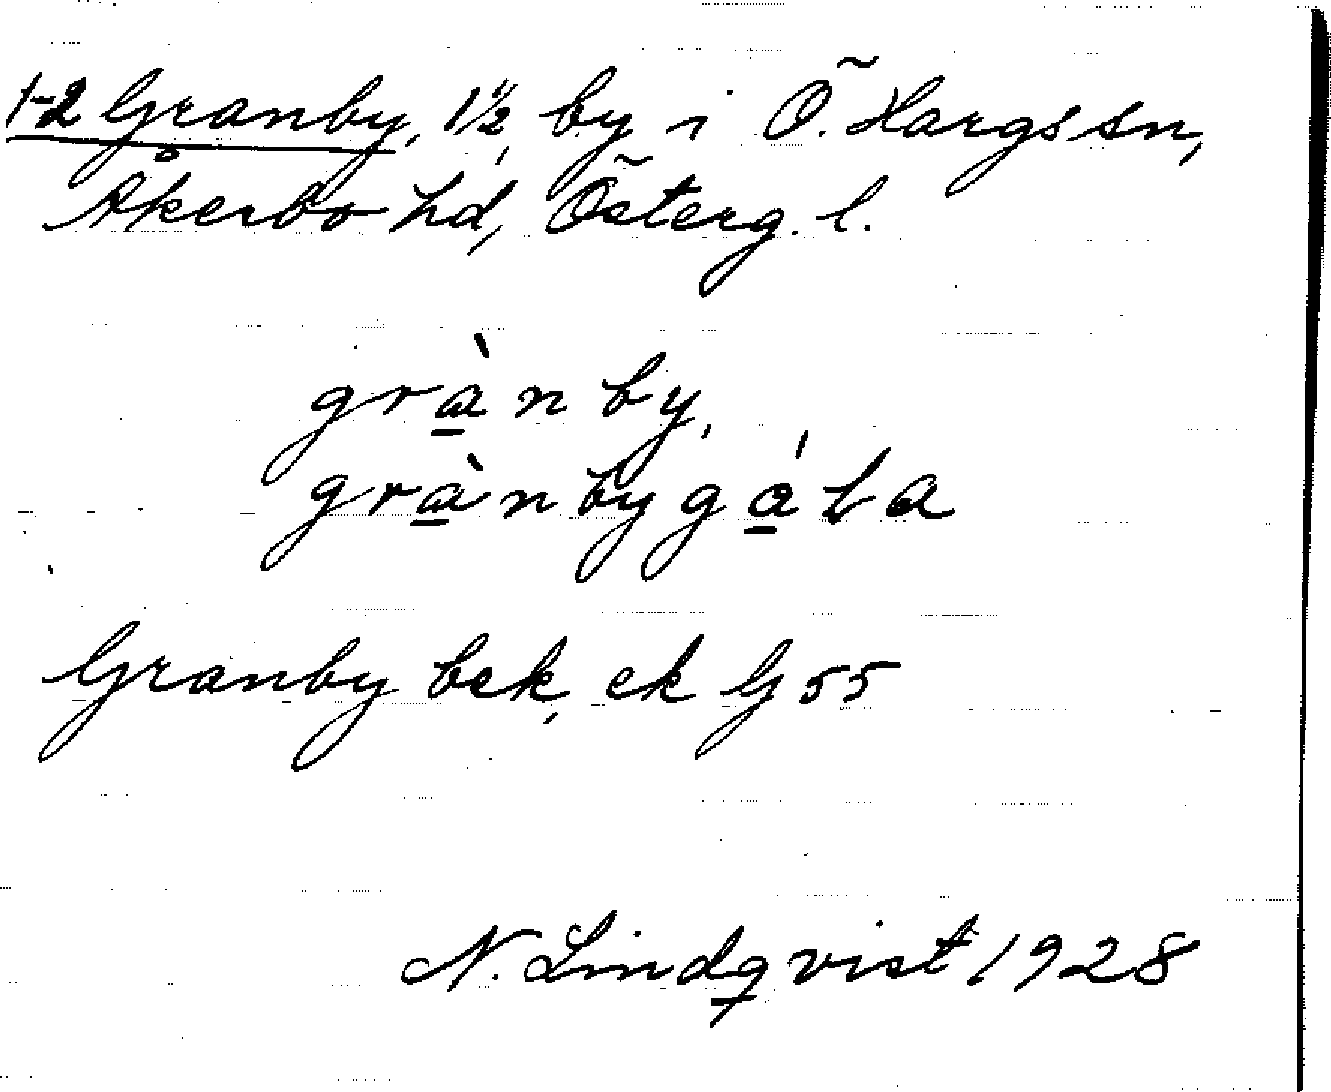 1-2 Granby, 1 1/2, by i Ö. Hargs sn,
Åkerbo hd, Österg. l.
grànby,
grànbygáta
Granby bek, ek G 55
N. Lindqvist 1928